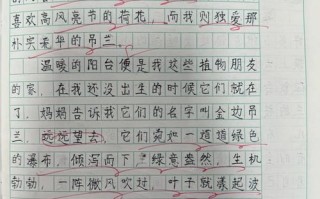 喜欢高风亮节的荷花，而我则独爱那
朴实无华的吊兰。
温暖的阳台便是我这些植物朋友
的家，在我还没出生的时候它们就在
了，妈妈告诉我它们的名字叫金边吊
兰，远远望去，它们宛如一道道绿色
的瀑布，倾泻而下，绿意盎然，生机
勃勃，一阵微风吹过，叶子就漾起波